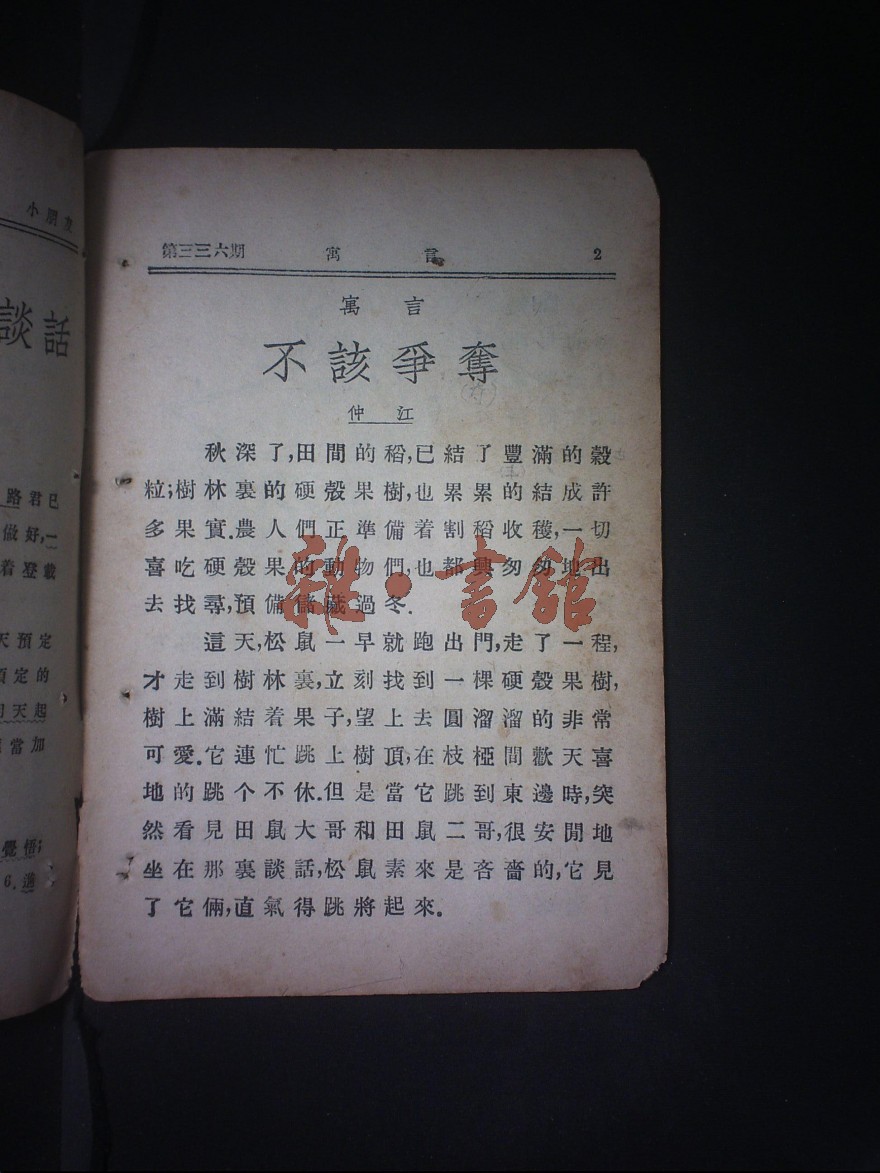 小朋友
談話
路君已
做好,一
着登載
天預定
預定的
天起
當加
覺悟;
6.
第三三六期 寓言 2
寓言
不該爭奪
仲江
秋深了,田間的稻,已結了豐滿的穀
粒;樹林裏的硬殼果樹,也累累的結成許
多果實.農人們正準備着割稻收穫,一切
喜吃硬殼果的動物們,也都興匆匆地出
去找尋,預備儲藏過冬.
這天,松鼠一早就跑出門,走了一程,
才走到樹林裏,立刻找到一棵硬殼果樹,
樹上滿結着果子,望上去圓溜溜的非常
可愛.它連忙跳上樹頂,在枝椏間歡天喜
地的跳个不休.但是當它跳到東邊時,突
然看見田鼠大哥和田鼠二哥,很安閒地
坐在那裏談話,松鼠素來是吝嗇的,它見
了它倆,直氣得跳將起來.
雜·書館